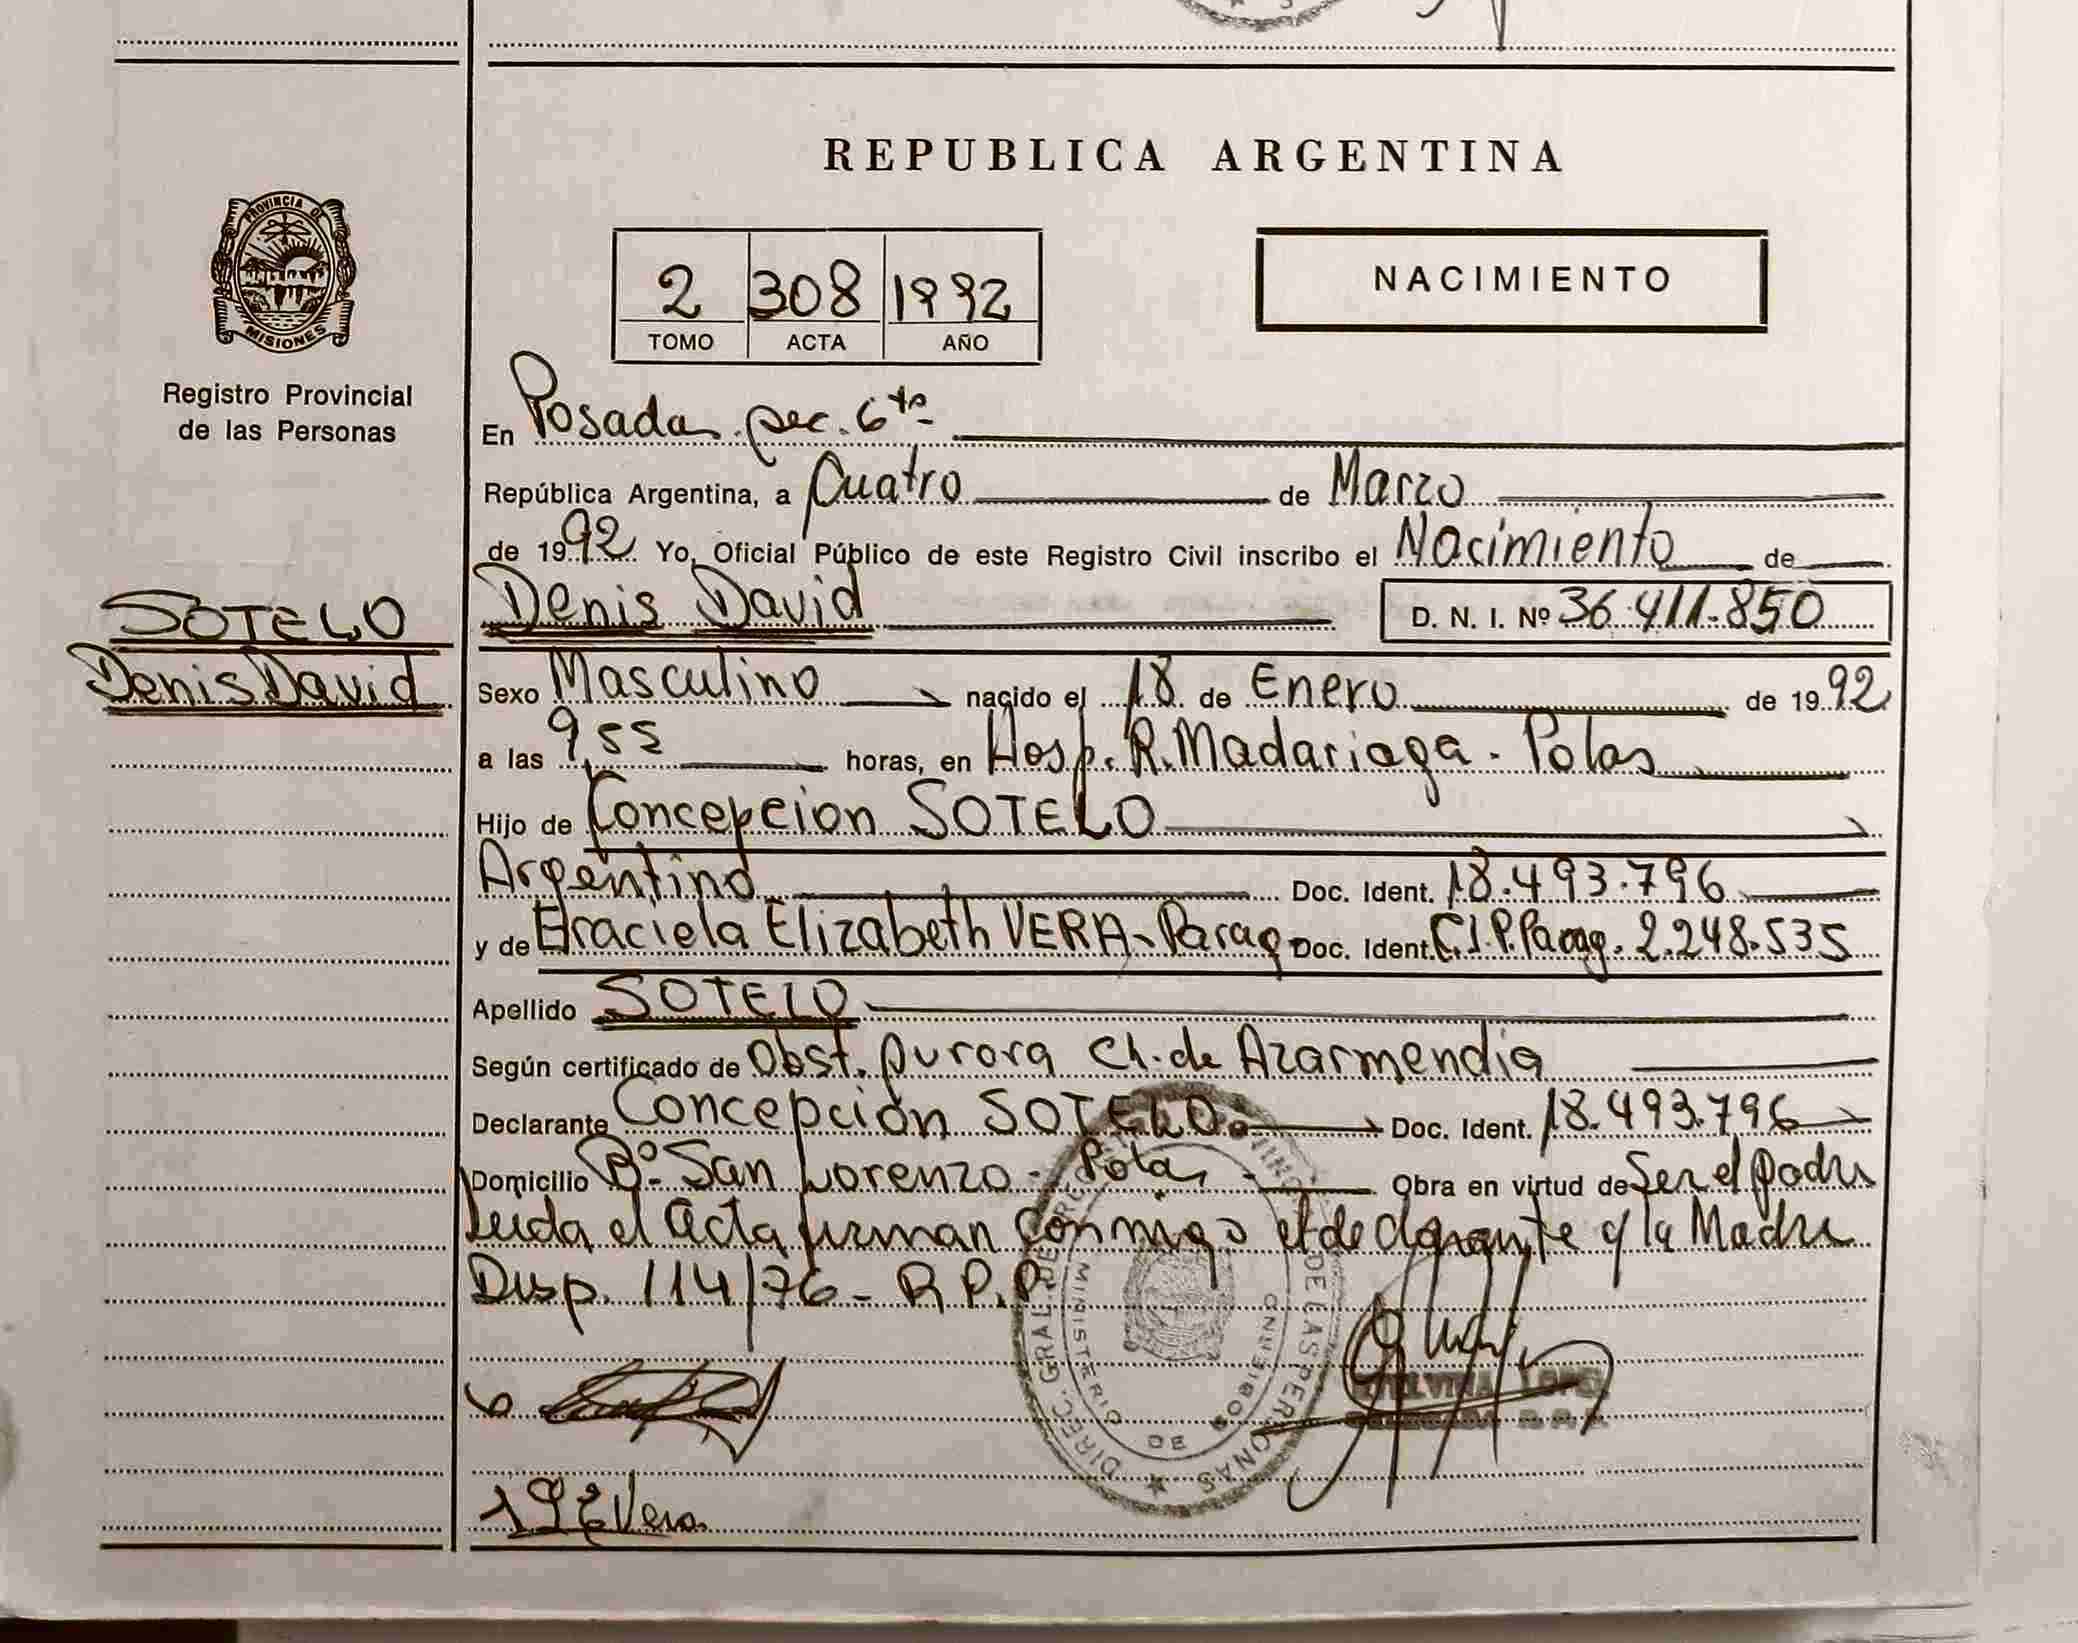 REPUBLICA ARGENTINA
PROVINCIA DE
MISIONES
Registro Provincial
de las Personas
2 308 1992
TOMO ACTA AÑO
NACIMIENTO
En Posadas sec. 6ta
República Argentina, a Cuatro de Marzo
de 1992 Yo, Oficial Público de este Registro Civil inscribo el Nacimiento de
SOTELO
Denis David
Denis David D. N. I. Nº 36.411.850
Sexo Masculino nacido el 18 de Enero de 1992
a las 9,55 horas, en Hosp. R. Madariaga - Pdas
Hijo de Concepcion SOTELO
Argentino Doc. Ident. 18.493.796
y de Graciela Elizabeth VERA - Parag Doc. Ident. C.I.P. Parag. 2.248.535
Apellido SOTELO
Según certificado de Obst. Aurora Ch. de Azarmendia
Declarante Concepción SOTELO. Doc. Ident. 18.493.796
Domicilio Bº San Lorenzo - Pdas - Obra en virtud de Ser el padre
Leida el Acta firman conmigo el declarante y la Madre
Disp. 114/76 - R.P.P.
DIREC. GRAL. DE DE LAS PERSONAS
MINISTERIO DE GOBIERNO
Vera